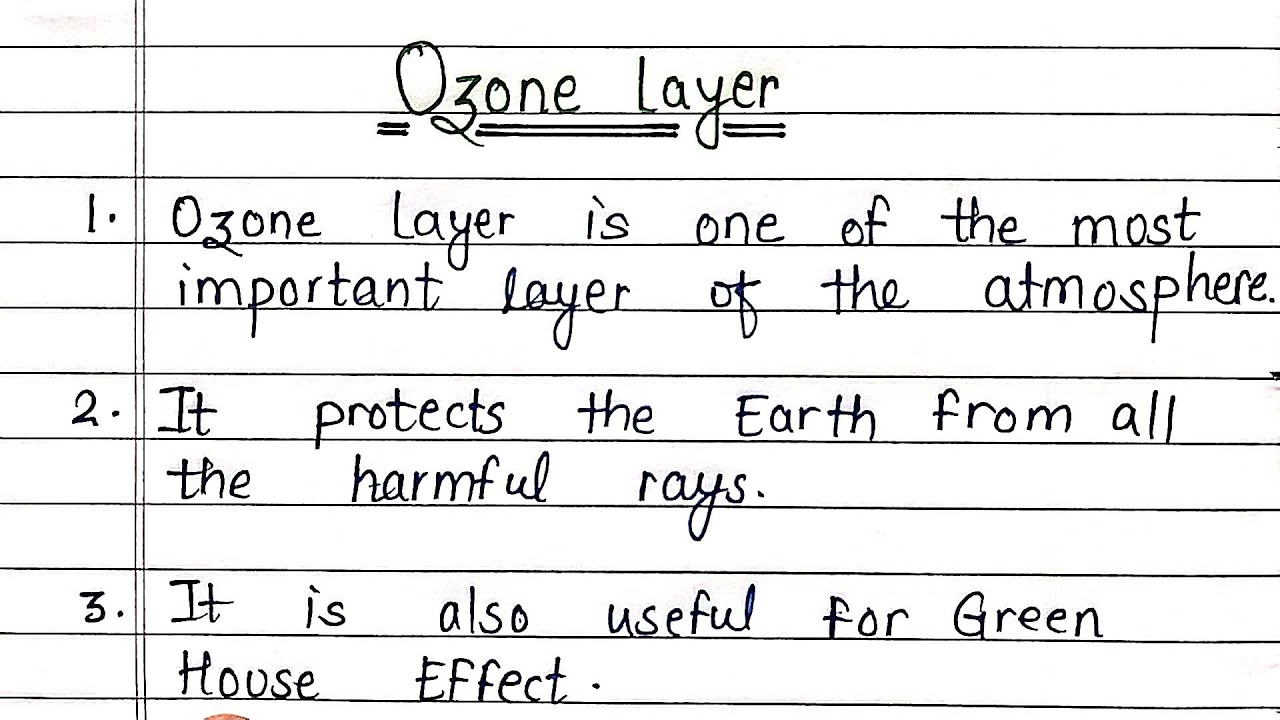 Ozone layer
1. Ozone layer is one of the most
important layer of the atmosphere.
2. It protects the Earth from all
the harmful rays.
3. It is also useful for Green
House Effect.